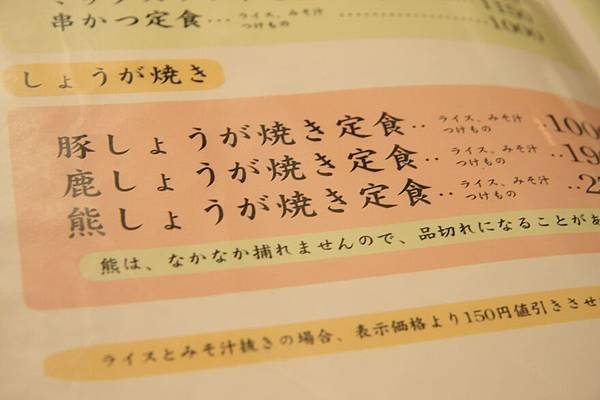 串かつ定食… ライス、みそ汁 つけもの …1000
しょうが焼き
豚しょうが焼き定食‥ ライス、みそ汁 つけもの ‥100
鹿しょうが焼き定食‥ ライス、みそ汁 つけもの ‥19
熊しょうが焼き定食‥ ライス、みそ汁 つけもの ‥2
熊は、なかなか捕れませんので、品切れになることがあ
ライスとみそ汁抜きの場合、表示価格より150円値引きさせ